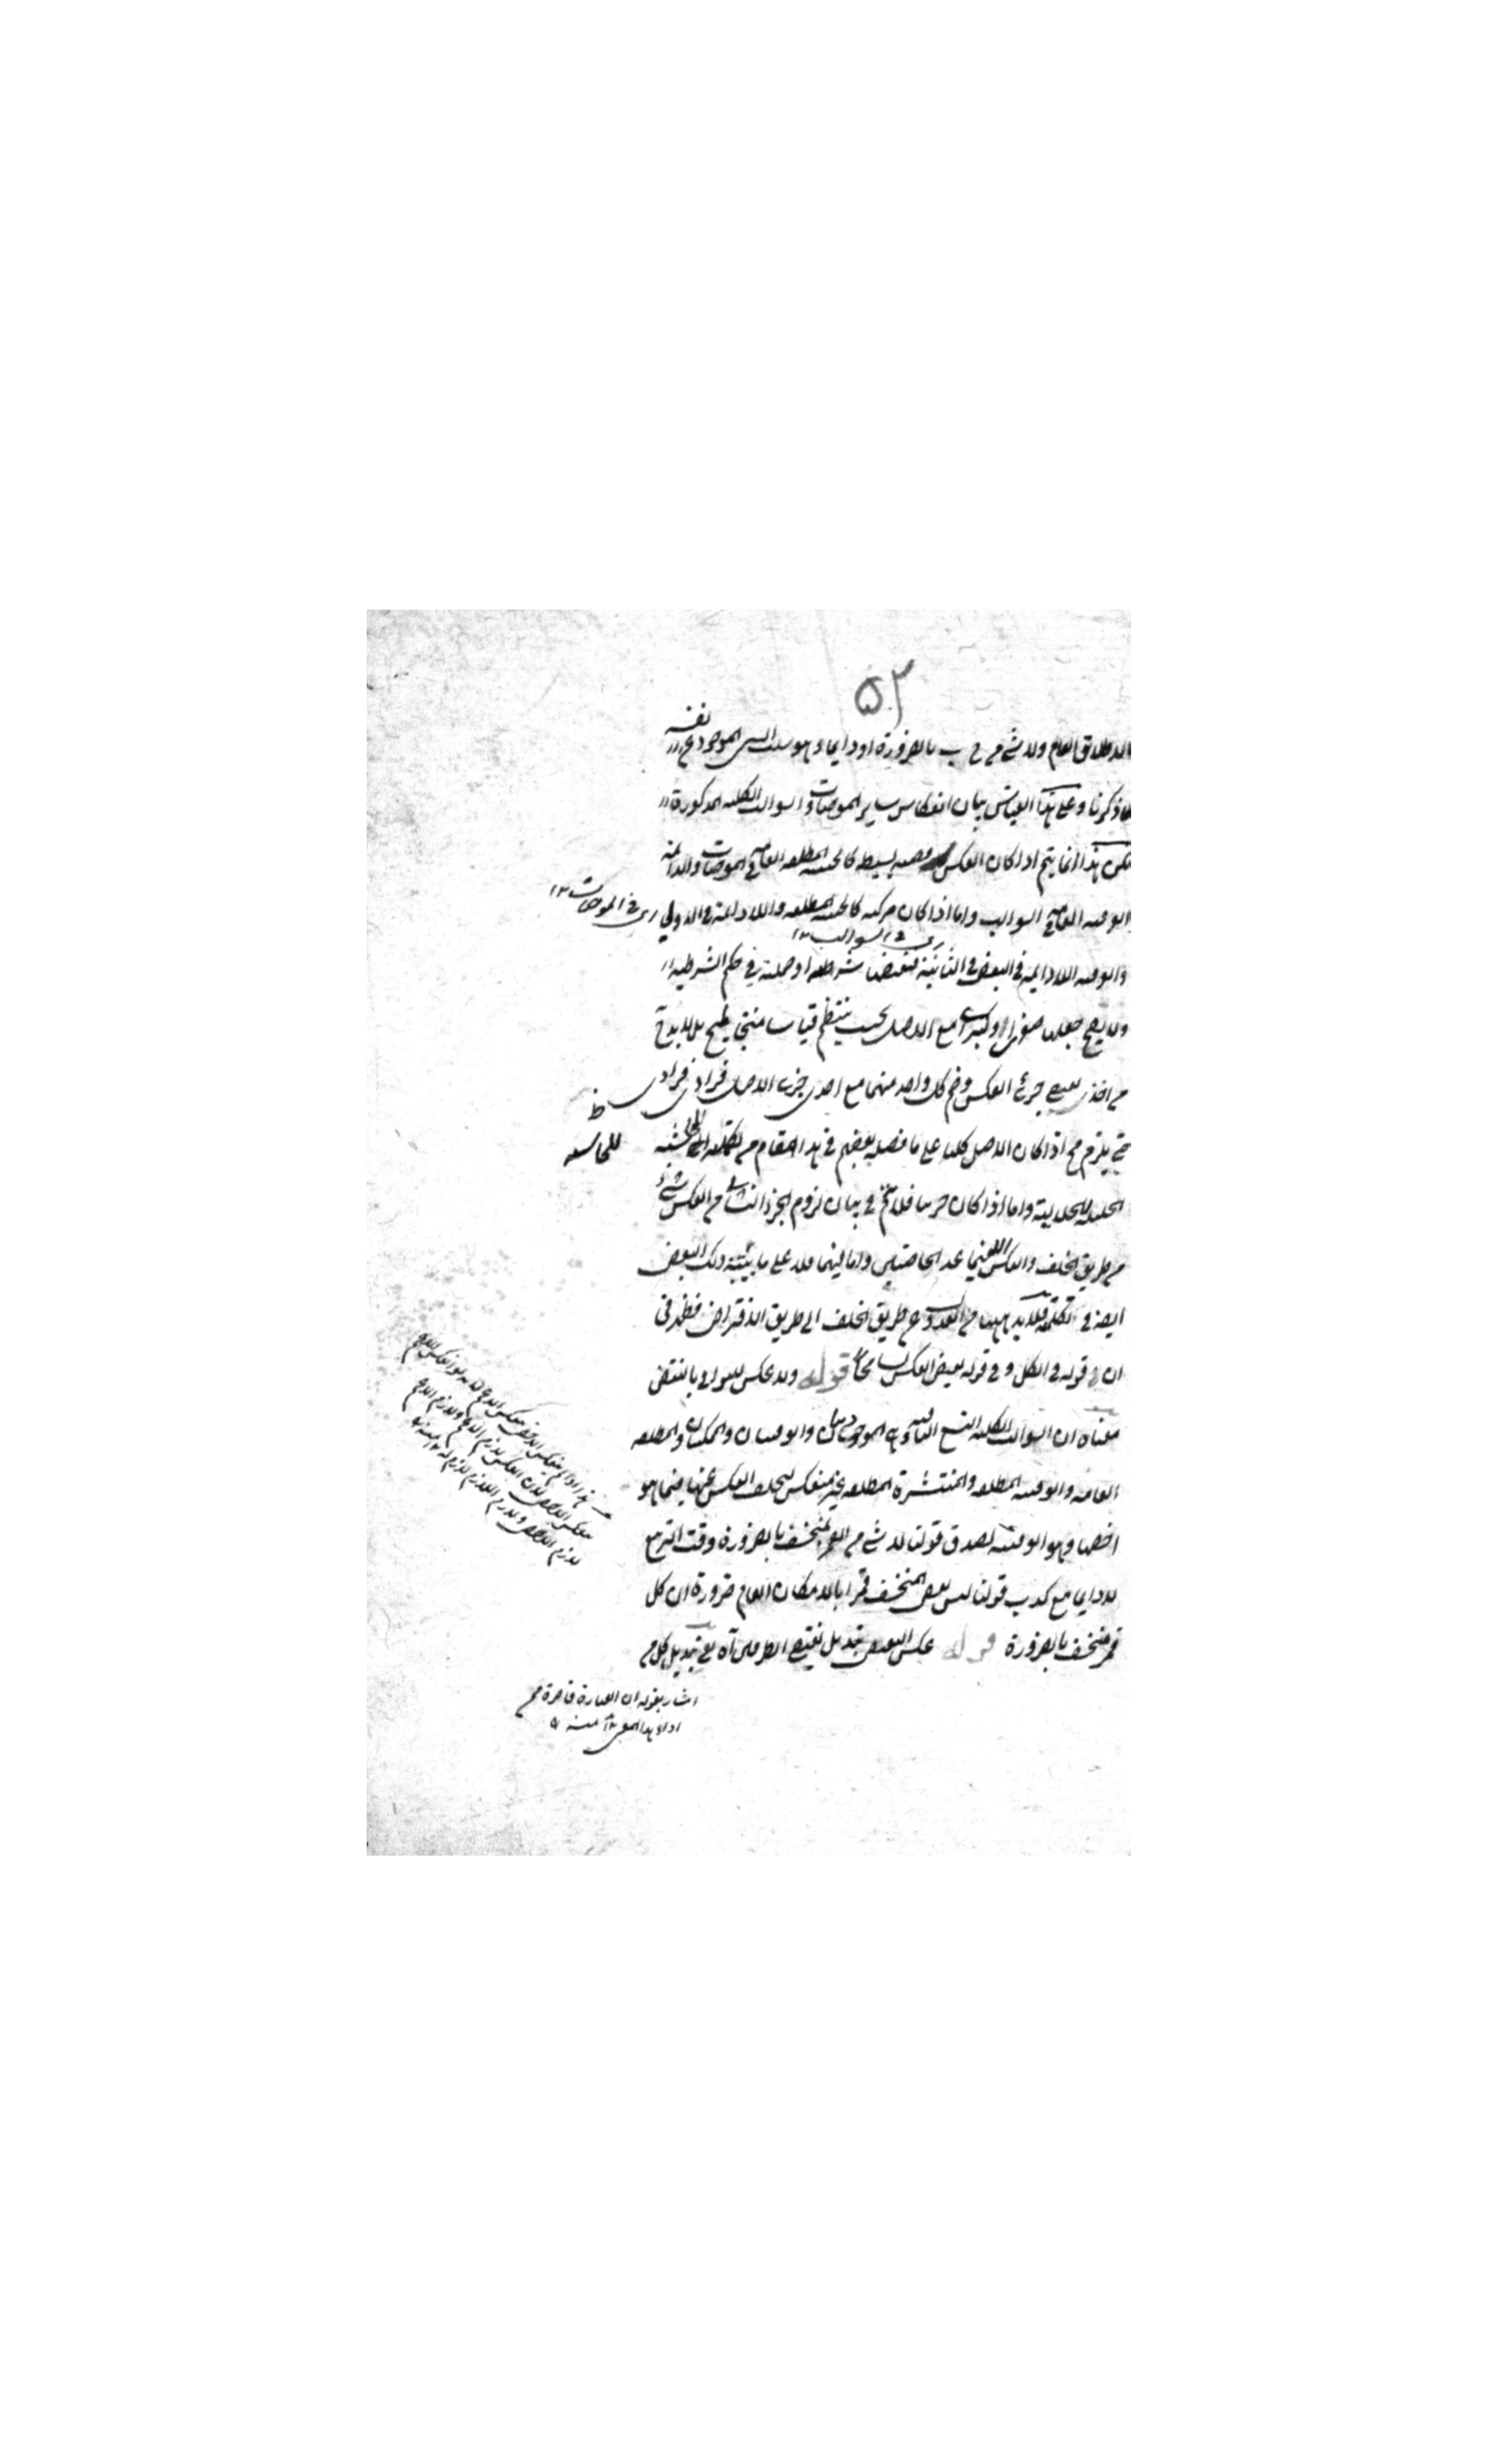 ۵۲
بالاطلاق العام ولا شئ من ج ب بالضرورة او دايما وهو سلب الشئ الموجود عن نفسه
ما ذكرنا وعلى هذا القياس بيان انعكاس ساير الموجبات والسوالب الكلية المذكورة
لكن هذا انما يتم اذا كان العكس قضية بسيطة كالحينية المطلقة العامة في الموجبات والدائمة
العامة في السوالب واما اذا كان مركبة كالحينية المطلقة واللادائمة في الاولى
اى فى الموجبات ١٢
اى فى السوالب ١٢
اللادايمة في البعض في الثانية فنقيضها شرطية او حملية في حكم الشرطية
ولا يصح جعلها صغرى او كبرى مع الاصل بحيث ينتظم قياسا منتجا للمح بل لا بد ح
من اخذ نقيض جزئى العكس وضم كل واحد منهما مع احدى جزئى الاصل فرادى فرادى
حتى يلزم مح اذا كان الاصل كليا على ما فصله بعضهم في هذا المقام من تكملة الحاشية
للحاشية ظ
الجلالية واما اذا كان جزئيا فلا يتم في بيان لزوم الجزء الثانى من العكس شئ
من طريق الخلف والعكس فيما عدا الخاصتين واما فيهما فلا على ما بينه ذلك البعض
ايضا في التكملة فلا بد ههنا من العدول عن طريق الخلف الى طريق الافتراض فظهر
ان في قوله في الكل و في قوله نقيض العكس تسامحا قوله ولا عكس للبواقى بالنقض
معناه ان السوالب الكلية التسع الباقية وهى الموجوديتان والوقتيتان والممكنتان والمطلقة
العامة والوقتية المطلقة والمنتشرة المطلقة غير منعكس لتخلف العكس عنها فيما هو
اخصها وهو الوقتية لصدق قولنا لا شئ من القمر بمنخسف بالضرورة وقت التربيع
لا دايما مع كذب قولنا ليس بعض المنخسف قمرا بالامكان العام ضرورة ان كل
قمر منخسف بالضرورة قوله عكس النقيض تبديل نقيضى الطرفين آه يعنى تبديل كل من
اشار بقوله ان العبارة قاصرة عن
اداء هذا المعنى ١٢ منه
لازم الاخص ولازم اللازم لازم ١٢ منه